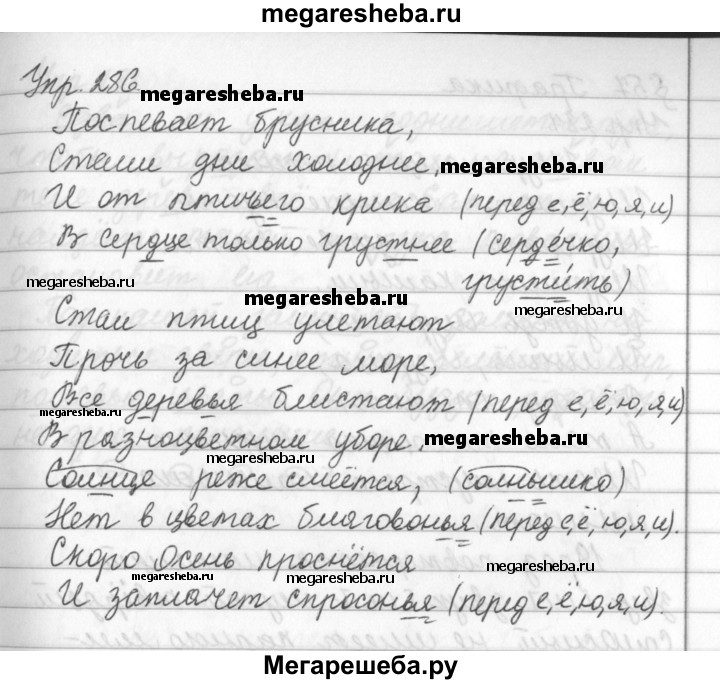 megaresheba.ru
Упр. 286.
megaresheba.ru
Поспевает брусника,
Стали дни холоднее,
megaresheba.ru
И от птичьего крика (перед е, ё, ю, я, и)
В сердце только грустнее (сердечко,
грустить)
megaresheba.ru
megaresheba.ru
megaresheba.ru
Стаи птиц улетают
Прочь за синее море,
Все деревья блистают (перед е, ё, ю, я, и)
megaresheba.ru
В разноцветном уборе.
megaresheba.ru
megaresheba.ru
Солнце реже смеётся, (солнышко)
Нет в цветах благовонья (перед е, ё, ю, я, и).
Скоро Осень проснётся
megaresheba.ru
megaresheba.ru
megaresheba.ru
И заплачет спросонья (перед е, ё, ю, я, и).
Мегарешеба.ру